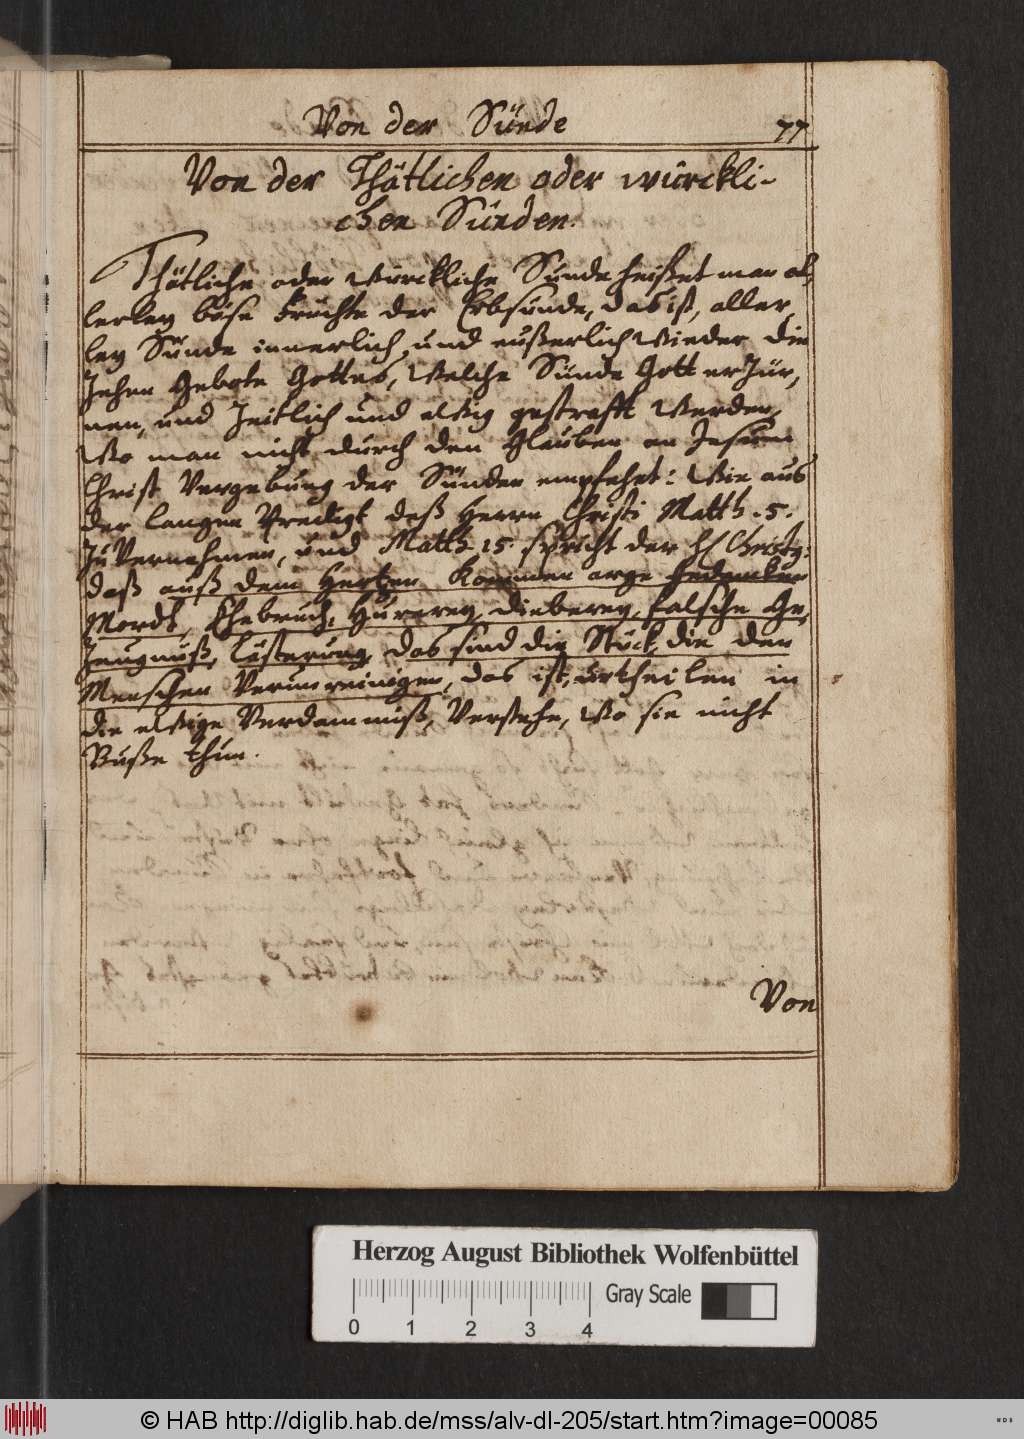 Von der Sünde 77
Von der Thätlichen oder würckli-
chen Sünden.
Thätliche oder Würckliche Sünde heißet man al,
lerley böse Früchte der Erbsünde, das ist, aller,
ley Sünde innerlich und eußerlich Wieder die
Zehen Gebote Gottes, Welche Sünde Gott erZür,
nen, und Zeitlich und eWig gestrafft Werden,
Wo man nicht durch den Glauben an Jesum
Christ Vergebung der Sünden empfehet: Wie aus
der langen Predigt deß Herrn Christi Matth. 5.
Zu Vernehmen, und Matth. 15. spricht der H Christg:
daß auß dem Hertzen Kommen arge Gedancken
Mordt, Ehebruch, Hurerey, dieberey, falsche Ge,
Zeugnüß, lästerung, das sind die Stück, die den
Menschen Verunreinigen, das ist, urtheilen in
die eWige Verdamnüß, Verstehe, Wo sie nicht
Buße thun.
Von
Herzog August Bibliothek Wolfenbüttel
Gray Scale
0 1 2 3 4
© HAB http://diglib.hab.de/mss/alv-dl-205/start.htm?image=00085
WDB